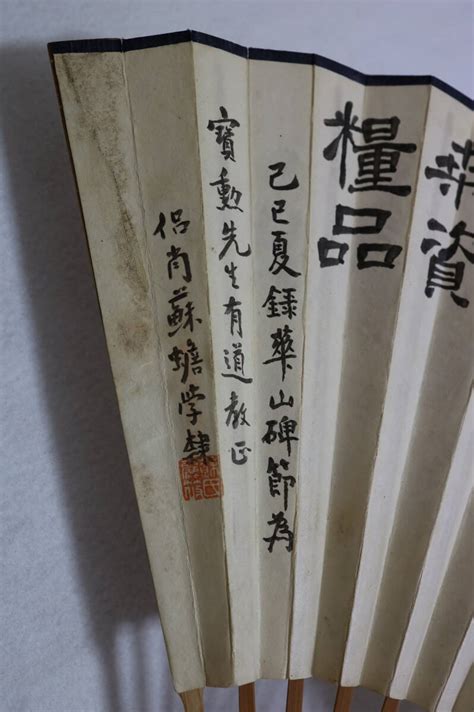 桑資
糧品
己巳夏録華山碑節為
寶勳先生有道教正
侶肖蘇蟾学隸